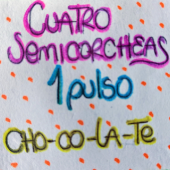 CUATRO
SEMICORCHEAS
1 pulso
CHO-CO-LA-TE